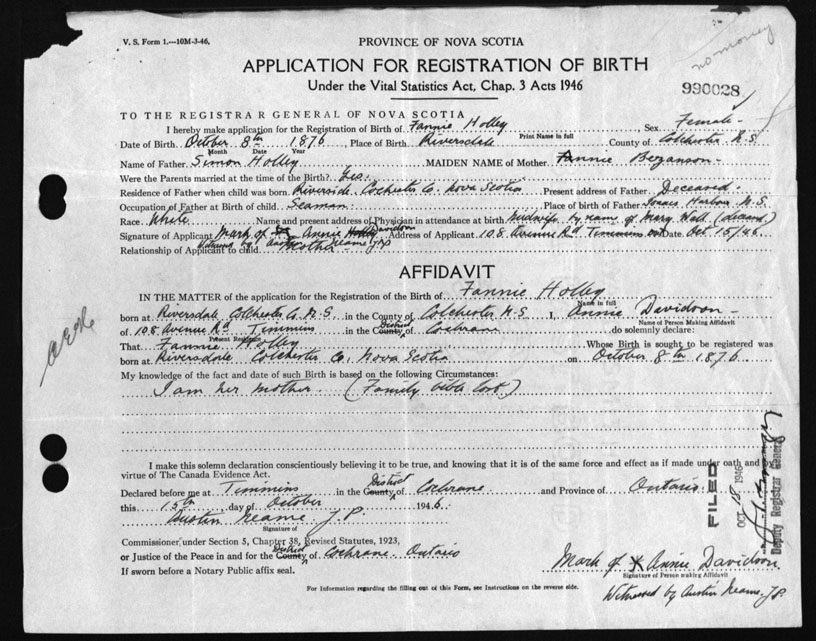 no money
V. S. Form 1.—10M-3-46,
PROVINCE OF NOVA SCOTIA
APPLICATION FOR REGISTRATION OF BIRTH
Under the Vital Statistics Act, Chap. 3 Acts 1946
990028
TO THE REGISTRAR GENERAL OF NOVA SCOTIA
I hereby make application for the Registration of Birth of Fannie Holley Sex Female
Print Name in full
Date of Birth October 8th 1876, Place of Birth Riversdale County of Colchester N.S.
Month Date Year
Name of Father Simon Holley MAIDEN NAME of Mother Annie Berganson
Were the Parents married at the time of the Birth? Yes.
Residence of Father when child was born Riverside Colchester Co. Nova Scotia Present address of Father Deceased.
Occupation of Father at Birth of child Seaman Place of birth of Father Harbour N.S.
Race White Name and present address of Physician in attendance at birth Midwife by name of Mary Hall (deceased)
Signature of Applicant Mark of X Annie Holley Davidson Address of Applicant 108 Avenue Rd Timmins Ont Date Oct 15/46
Witnessed by Austin Neame J.P.
Relationship of Applicant to child Mother
AFFIDAVIT
IN THE MATTER of the application for the Registration of Birth of Fannie Holley
Name in full
born at Riversdale Colchester Co. N.S. in the County of Colchester N.S. I, Annie Davidson
Name of Person Making Affidavit
of 108 Avenue Rd Timmins in the County District of Cochrane do solemnly declare:
Present Residence
That Fannie Holley Whose Birth is sought to be registered was
born at Riversdale Colchester Co Nova Scotia on October 8th 1876.
My knowledge of the fact and date of such Birth is based on the following Circumstances:
I am her mother. (Family bible lost)
I make this solemn declaration conscientiously believing it to be true, and knowing that it is of the same force and effect as if made under oath and by
virtue of The Canada Evidence Act.
Declared before me at Timmins in the County District of Cochrane and Province of Ontario
this 15th day of October 1946.
Austin Neame J.P.
Signature of
Commissioner under Section 5, Chapter 38, Revised Statutes, 1923,
or Justice of the Peace in and for the County District of Cochrane Ontario
If sworn before a Notary Public affix seal.
Mark of X Annie Davidson
Signature of Person making Affidavit
Witnessed by Austin Neame, J.P.
For Information regarding the filling out of this Form, see Instructions on the reverse side.
FILED
OCT 18 1946
Deputy Registrar General